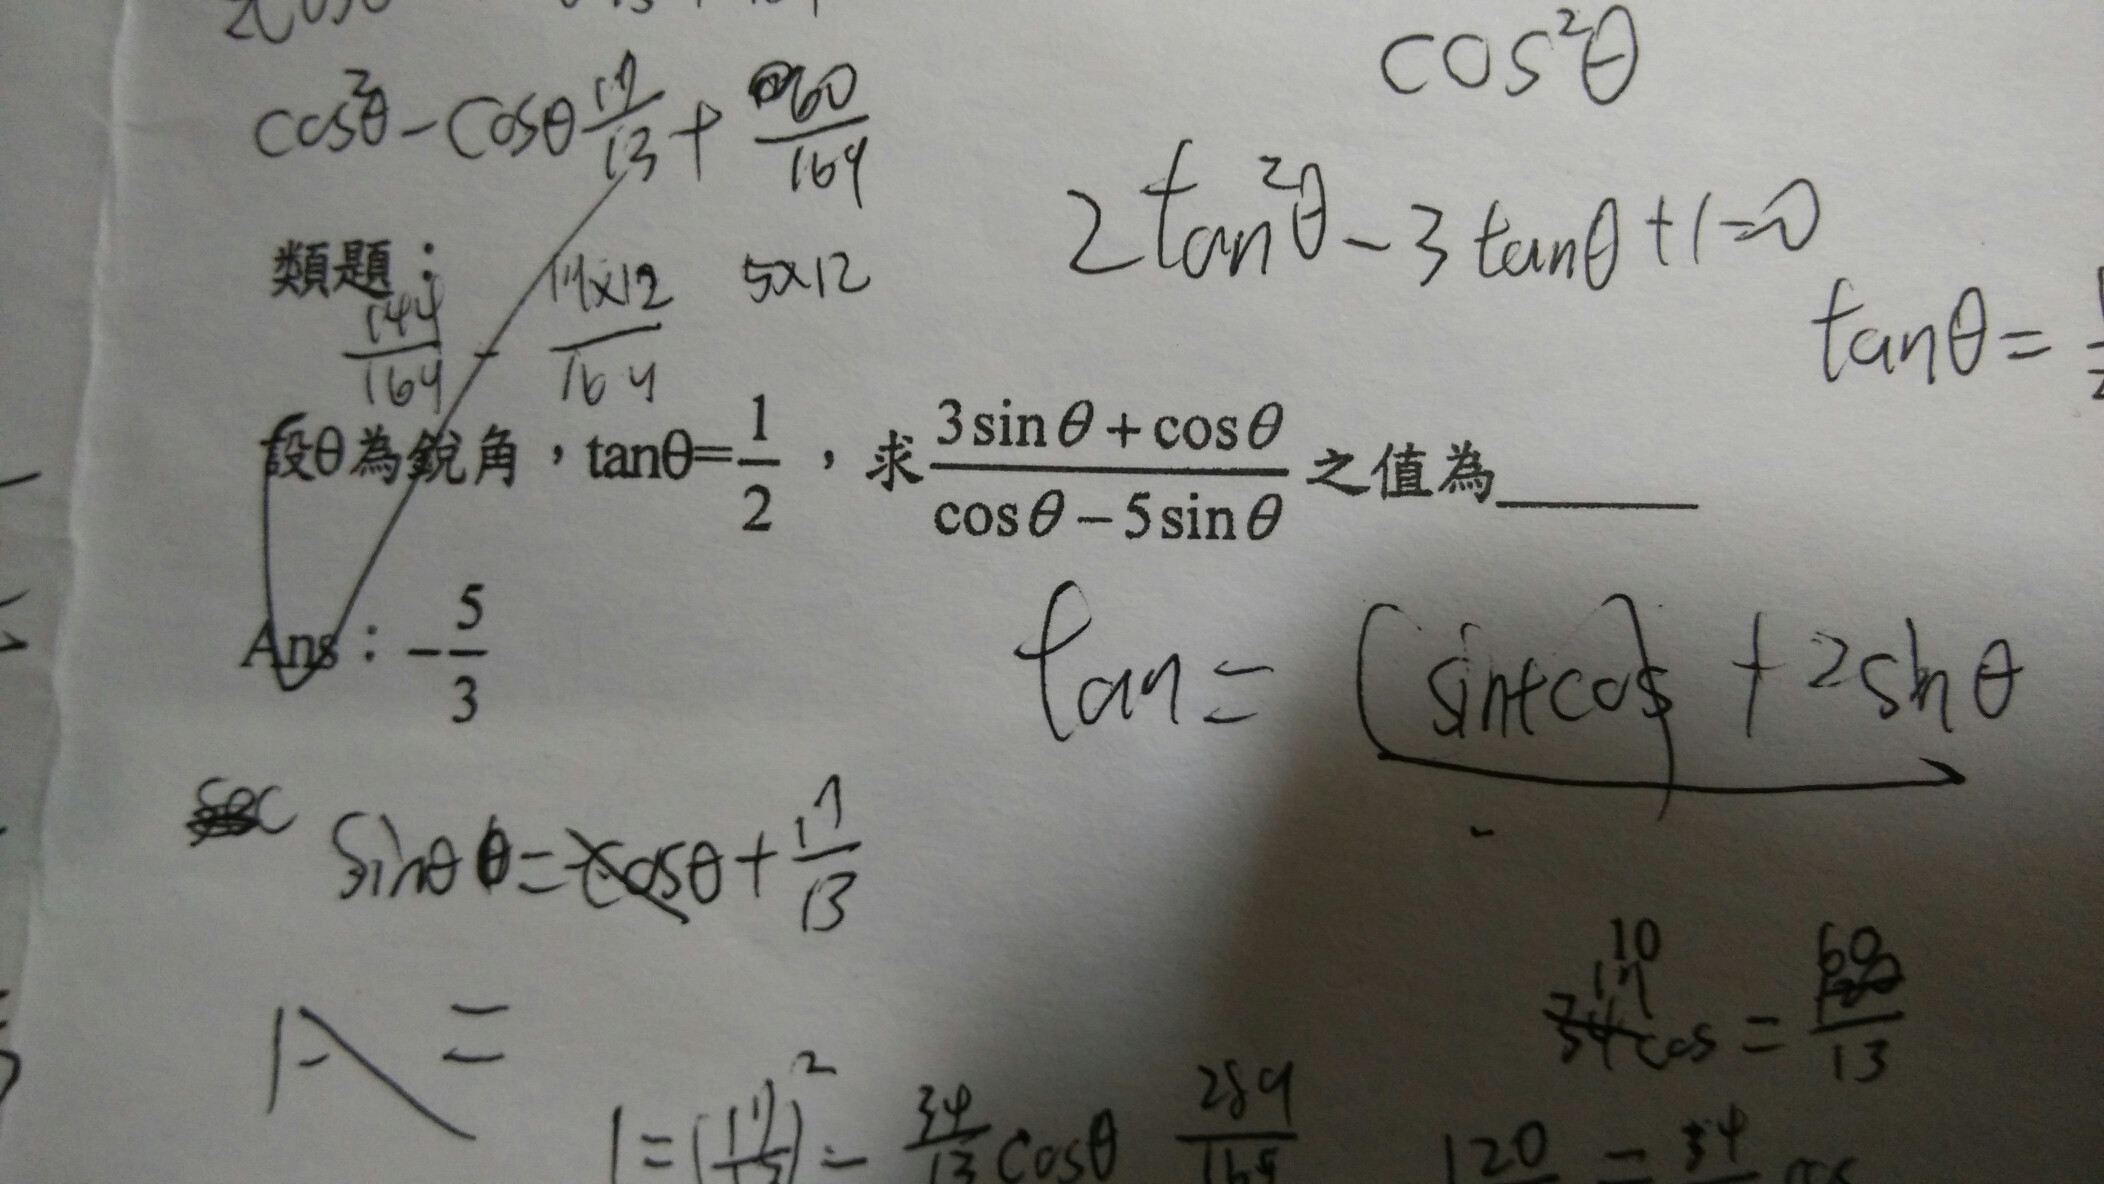 cos²θ
cos²θ - cosθ 17/13 + 60/169
2tan²θ - 3tanθ + 1 = 0
類題：
144/169 - 17×12/169
5×12
tanθ =
設θ為銳角，tanθ=1/2，求 (3sinθ+cosθ)/(cosθ−5sinθ) 之值為______
Ans：−5/3
tan = (sin+cos) + 2sinθ
sinθ = cosθ + 17/13
10
17
34 cos = 60/13
1 - =
1 = (17/13)² - 34/13 cosθ 289/169
120 = 34 cos